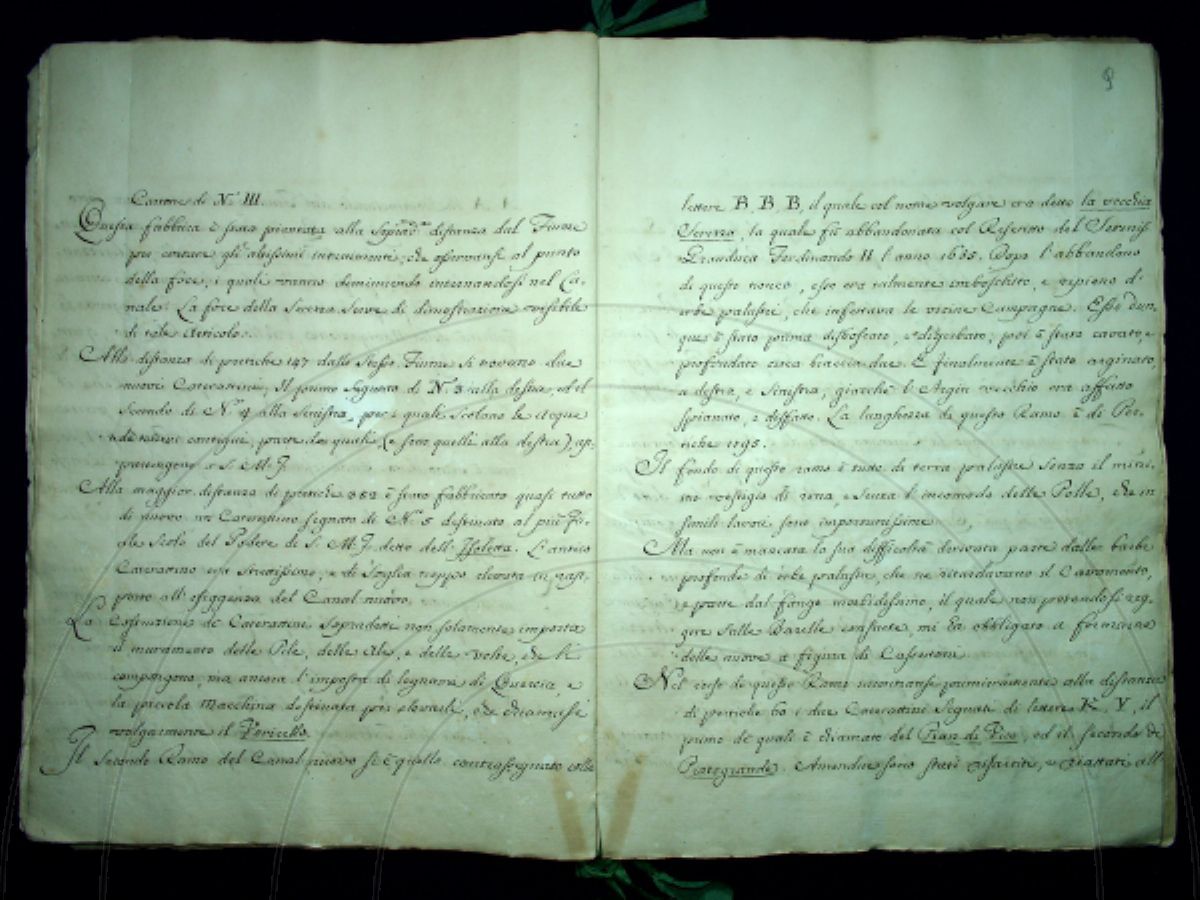 Cartone di N.º III.
Questa fabbrica è stata piantata alla distanza dal Fiume
per evitare gl'altissimi interrimenti, che osservansi al punto
della foce, i quali vanno diminuendo internandosi nel Ca-
nale. La foce della Serezza serve di dimostrazione visibile
di tale Articolo.
Alla distanza di pertiche 147 dallo stesso Fiume si trovano due
nuovi Caterattini, Il primo segnato di N.º 3 alla destra, ed il
secondo di N.º 4 alla sinistra, per i quali scolano le acque
de' terreni contigui, parte dei quali (e sono quelli alla destra), ap-
partengono a S. M. J.
Alla maggior distanza di pertiche 382 è stato fabbricato quasi tutto
di nuovo un Caterattino segnato di N.º 5 destinato al più fa-
cile scolo del Podere di S. M. J. detto dell'Isoletta. L'antico
Caterattino era strettissimo, e di soglia troppo elevata in rap-
porto all'esigenza del Canal nuovo.
La Costruzione de' Caterattini sopradetti non solamente importa
il muramento delle Pile, delle Ale, e delle volte, che li
compongono, ma ancora l'imposta di legname di Quercia, e
la piccola Macchina destinata per elevarli, che chiamasi
volgarmente il Pericello.
Il secondo Ramo del Canal nuovo si è quello contrassegnato colle
9
lettere B, B, B, il quale col nome volgare era detto la vecchia
Serezza, la quale fù abbandonata col Rescritto del Sereniss.
Granduca Ferdinando II l'anno 1655. Dopo l'abbandono
di questo tronco, esso era talmente imboschito, e ripieno d'
erbe palustri, che infestava le vicine Campagne. Esso dun-
que è stato prima disboscato, e diserbato; poi è stato cavato, e
profondato circa braccia due. E finalmente è stato arginato,
a destra, e sinistra, giacchè l'Argin vecchio era affatto
spianato, e disfatto. La lunghezza di questo Ramo è di Per-
tiche 1195.
Il fondo di questo ramo è tutto di terra palustre senza il mini-
mo vestigio di rena, e senza l'incomodo delle Polle, che in
simili lavori sono importunissime.
Ma non è mancata la sua difficoltà derivata parte dalle barbe
profonde di erbe palustri, che ne ritardavano il Cavamento,
e parte dal fango morbidissimo, il quale non potendosi reg-
gere sulle Barelle consuete, mi ha obbligato a formarne
delle nuove a figura di Cassettoni.
Nel corso di questo Ramo incontransi primieramente alla distanza
di pertiche 60 i due Caterattini segnati di lettere K. Y, il
primo de' quali è chiamato del Pian di Pisa, ed il secondo di
Pratogrande. Amendue sono stati risarciti, e riattati all'